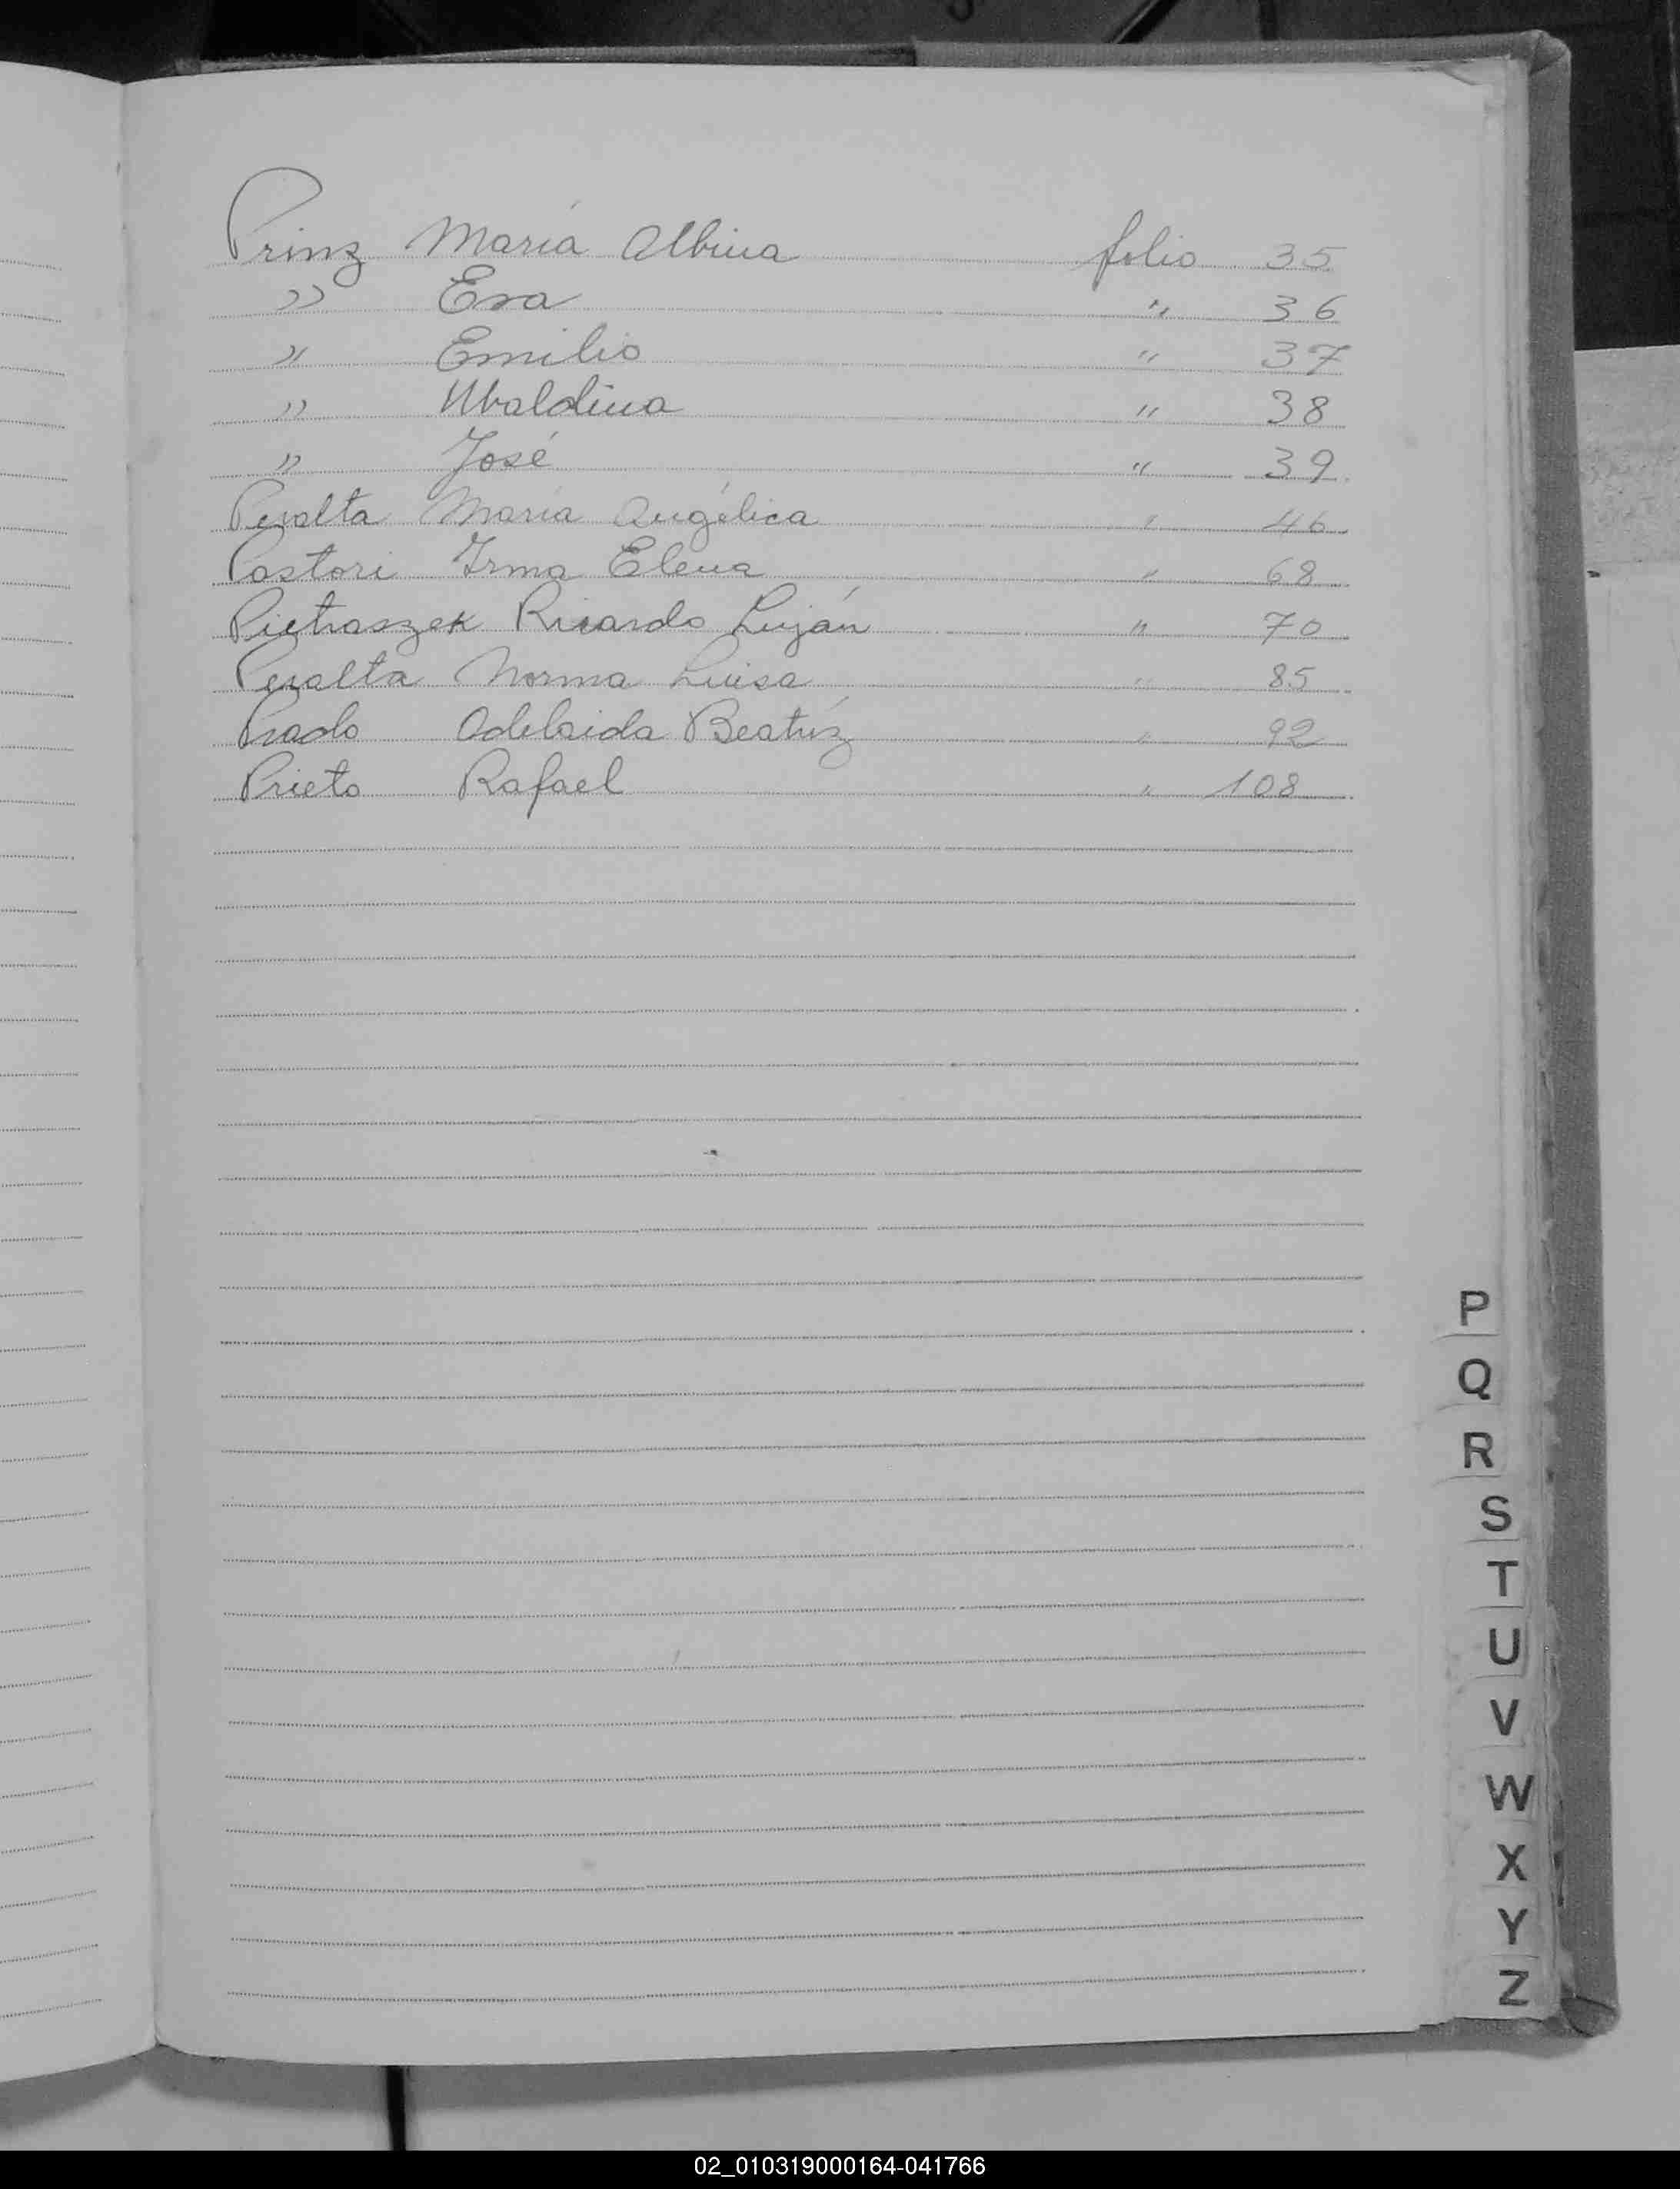 Prinz María Albina folio 35
" Eva " 36
" Emilio " 37
" Ubaldina " 38
" José " 39
Peralta María Angélica " 46
Pastori Irma Elena " 68
Pietraszek Ricardo Luján " 70
Peralta Norma Luisa " 85
Prado Adelaida Beatríz " 92
Prieto Rafael " 108
P
Q
R
S
T
U
V
W
X
Y
Z
02_010319000164-041766